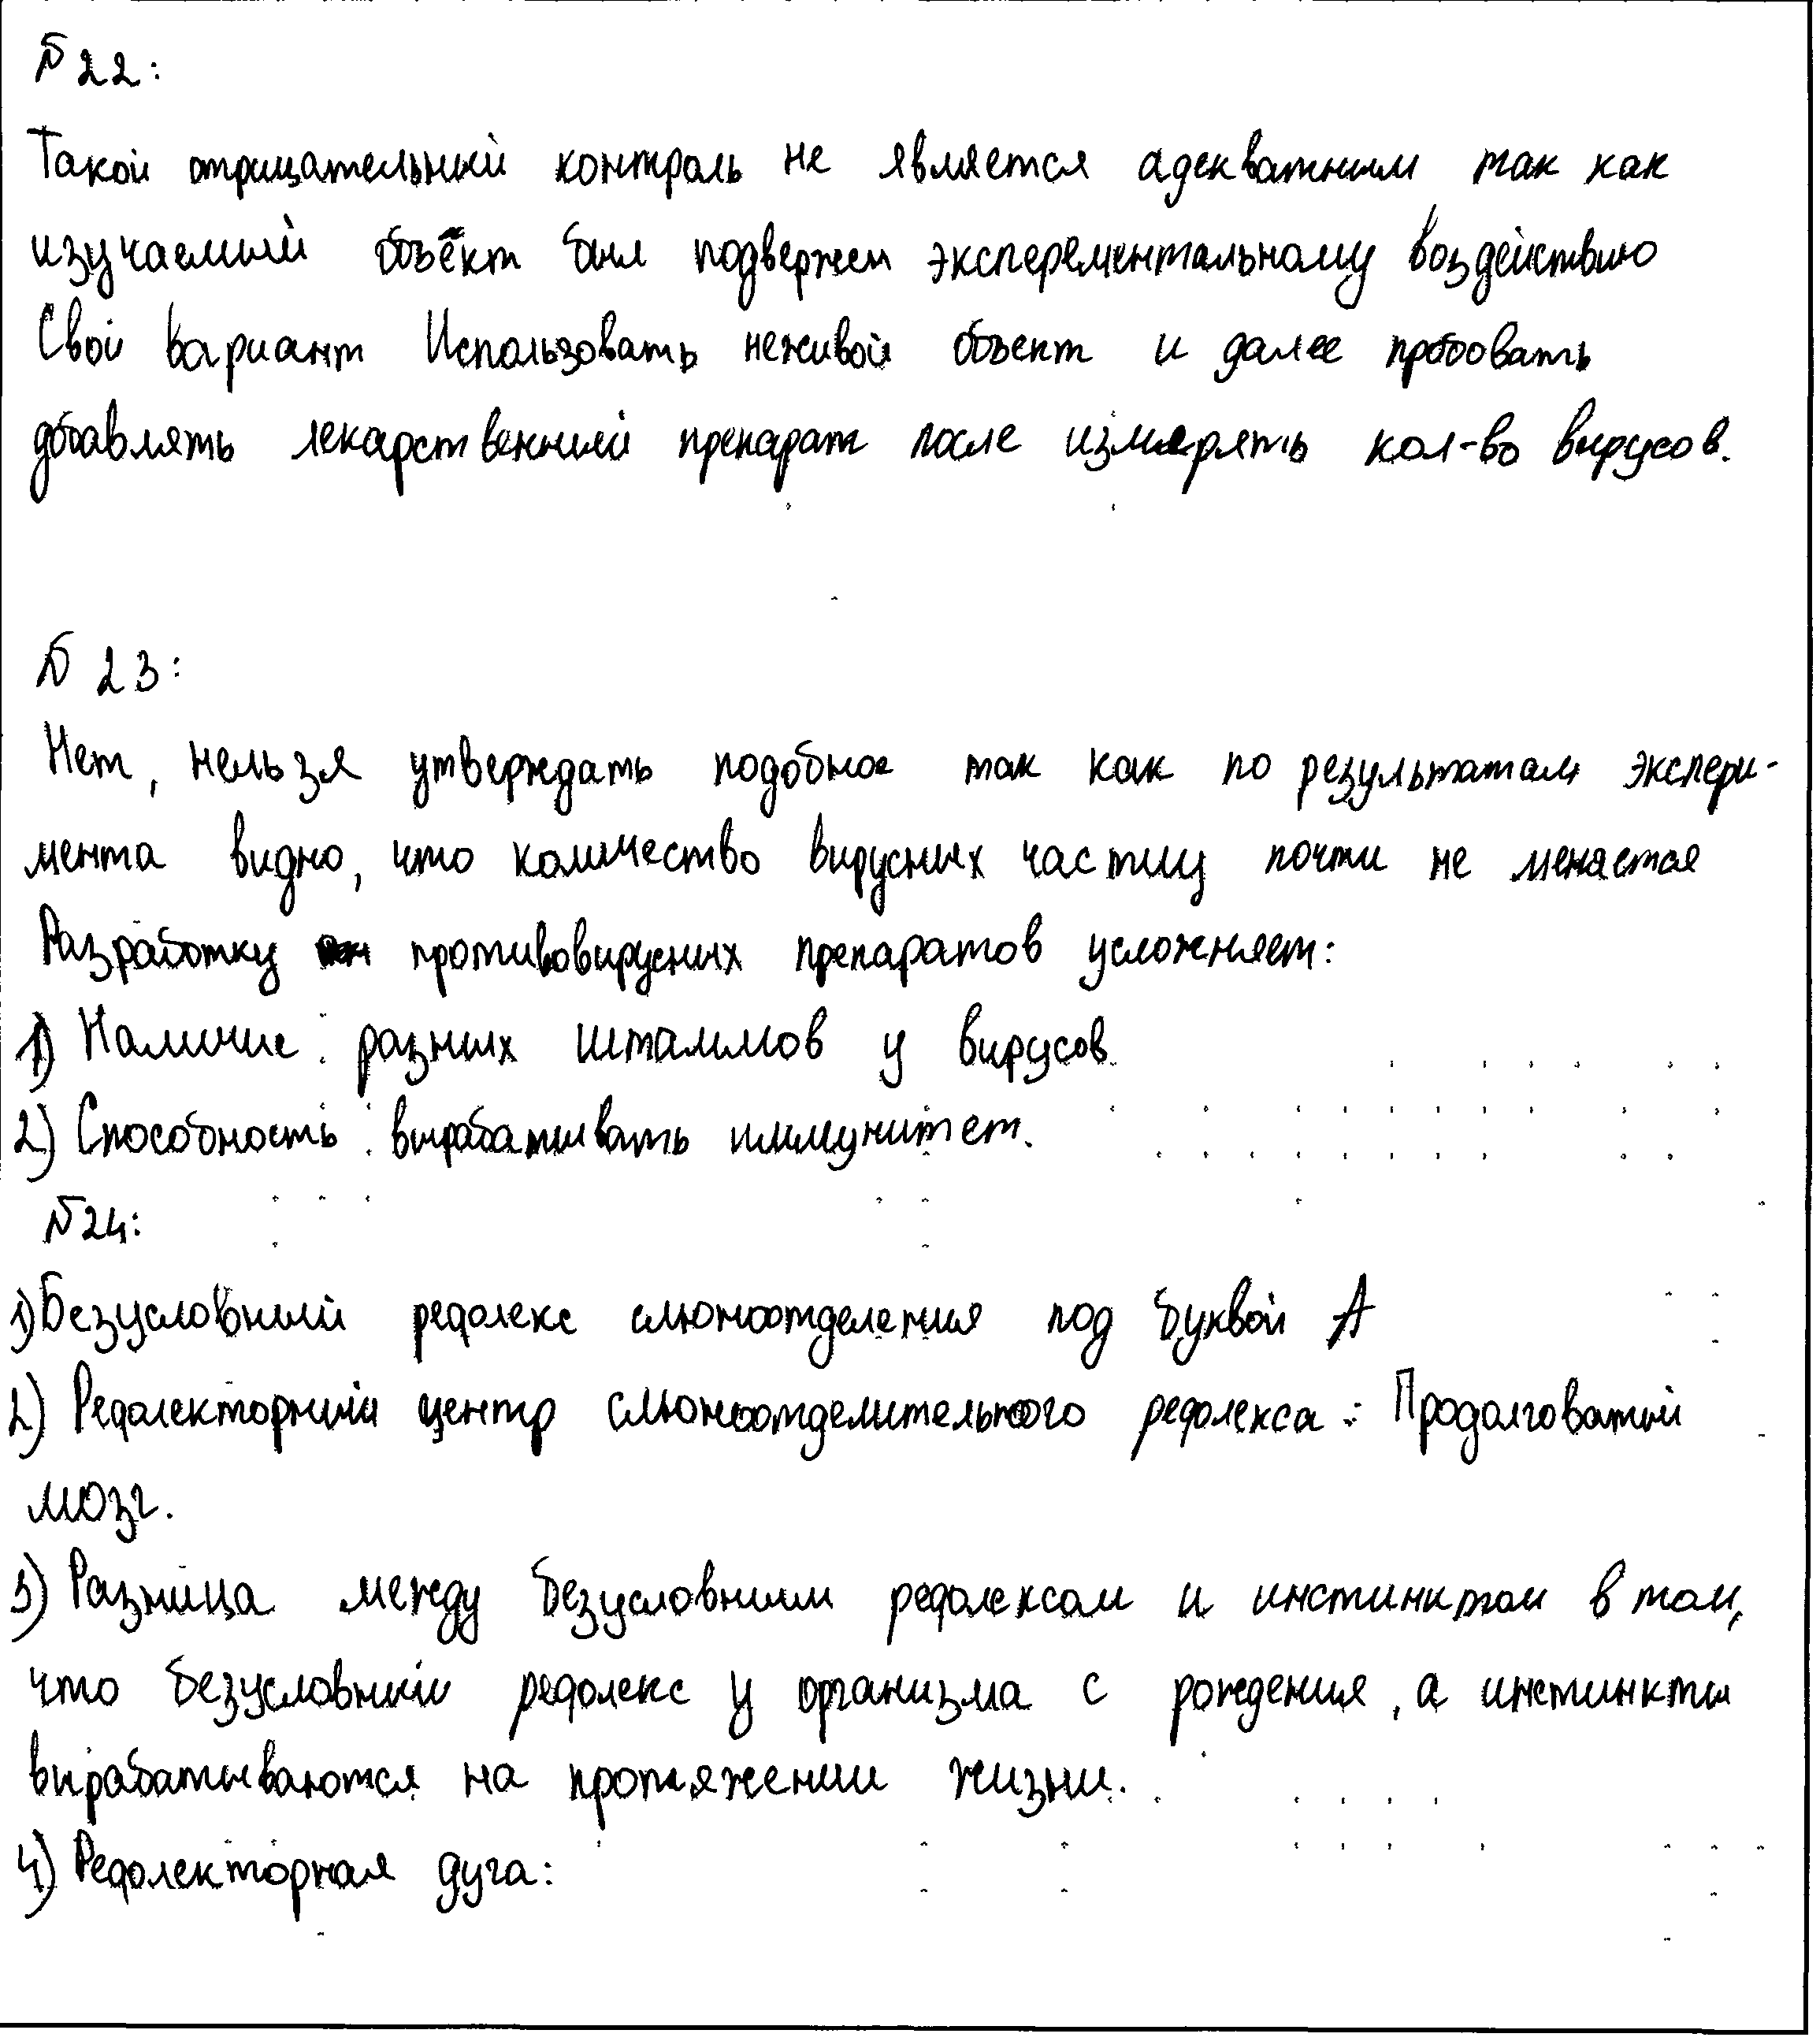 №22:
Такой отрицательный контроль не является адекватным так как
изучаемый объект был подвержен эксперементальному воздействию
Свой вариант Использовать неживой объект и далее пробовать
добавлять лекарственный препарат после измерять кол-во вирусов.
№ 23:
Нет, нельзя утверждать подобное так как по результатам экспери-
мента видно, что количество вирусных частиц почти не меняется
Разработку противовирусных препаратов усложняет:
1) Наличие разных штаммов у вирусов
2) Способность вырабатывать иммунитет.
№24:
1) Безусловный рефлекс слюноотделения под буквой А
2) Рефлекторный центр слюноотделительного рефлекса: Продолговатый
мозг.
3) Разница между безусловным рефлексом и инстинктом в том,
что безусловный рефлекс у организма с рождения, а инстинкты
вырабатываются на протяжении жизни.
4) Рефлекторная дуга: